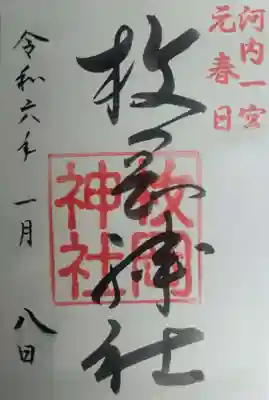 河内一宮
元春日
枚岡神社
枚岡神社
令和六年一月八日